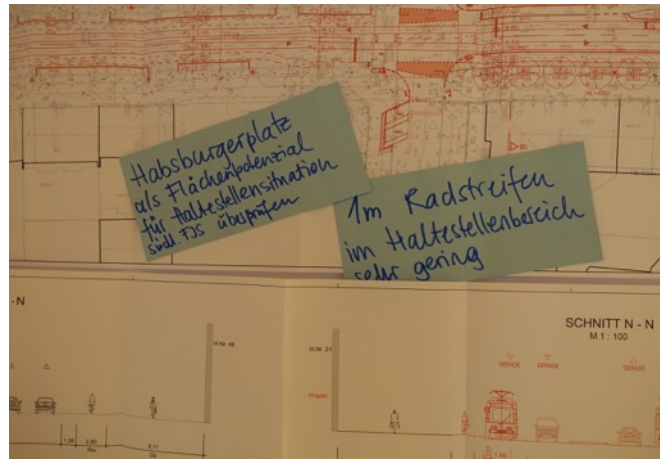 Habsburgerplatz
als Flächenpotenzial
für Haltestellensituation
südl. FJS überprüfen
1m Radstreifen
im Haltestellenbereich
sehr gering
- N
SCHNITT N - N
M 1 : 100
H.Nr. 48
H.Nr. 21
Projekt
GERADE
GERADE
GERADE